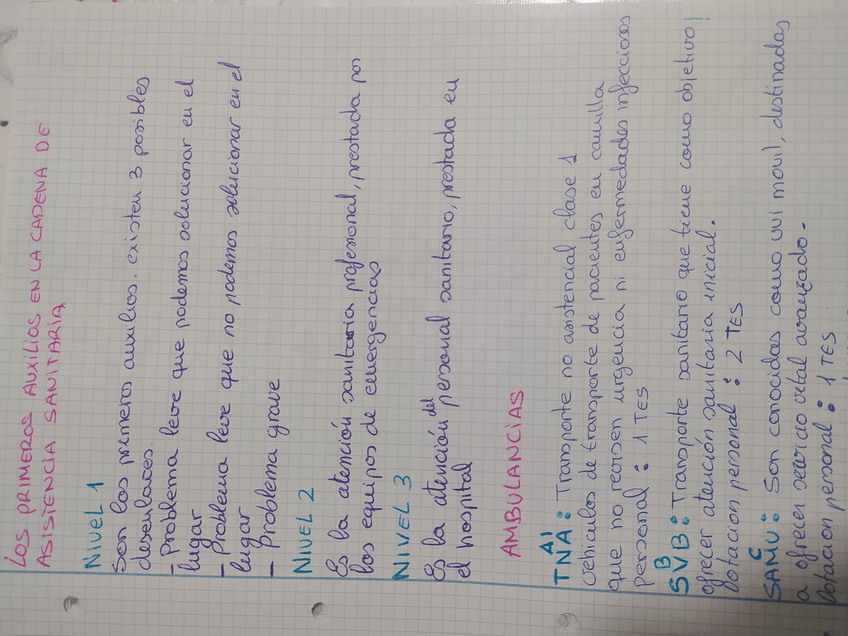 LOS PRIMEROS AUXILIOS EN LA CADENA DE
ASISTENCIA SANITARIA
NIVEL 1
Son los primeros auxilios. existen 3 posibles
desenlaces
- Problema leve que podemos solucionar en el
lugar
- Problema leve que no podemos solucionar en el
lugar
- Problema grave
NIVEL 2
Es la atención sanitaria profesional, prestada por
los equipos de emergencias
NIVEL 3
Es la atención del personal sanitario, prestada en
el hospital
AMBULANCIAS
A1
TNA: Transporte no asistencial clase 1
vehiculos de transporte de pacientes en camilla
que no revisen urgencia ni enfermedades infecciosas
personal: 1 TES
B
SVB: Transporte sanitario que tiene como objetivo
ofrecer atención sanitaria inicial.
Dotacion personal: 2 TES
C
SAMU: Son conocidas como uvi movil, destinadas
a ofrecer vital avanzado.
Dotacion personal: 1 TES